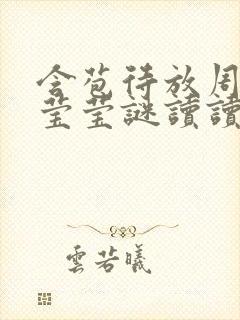 含苞待放周
莹莹謎讀讀
雲若曦